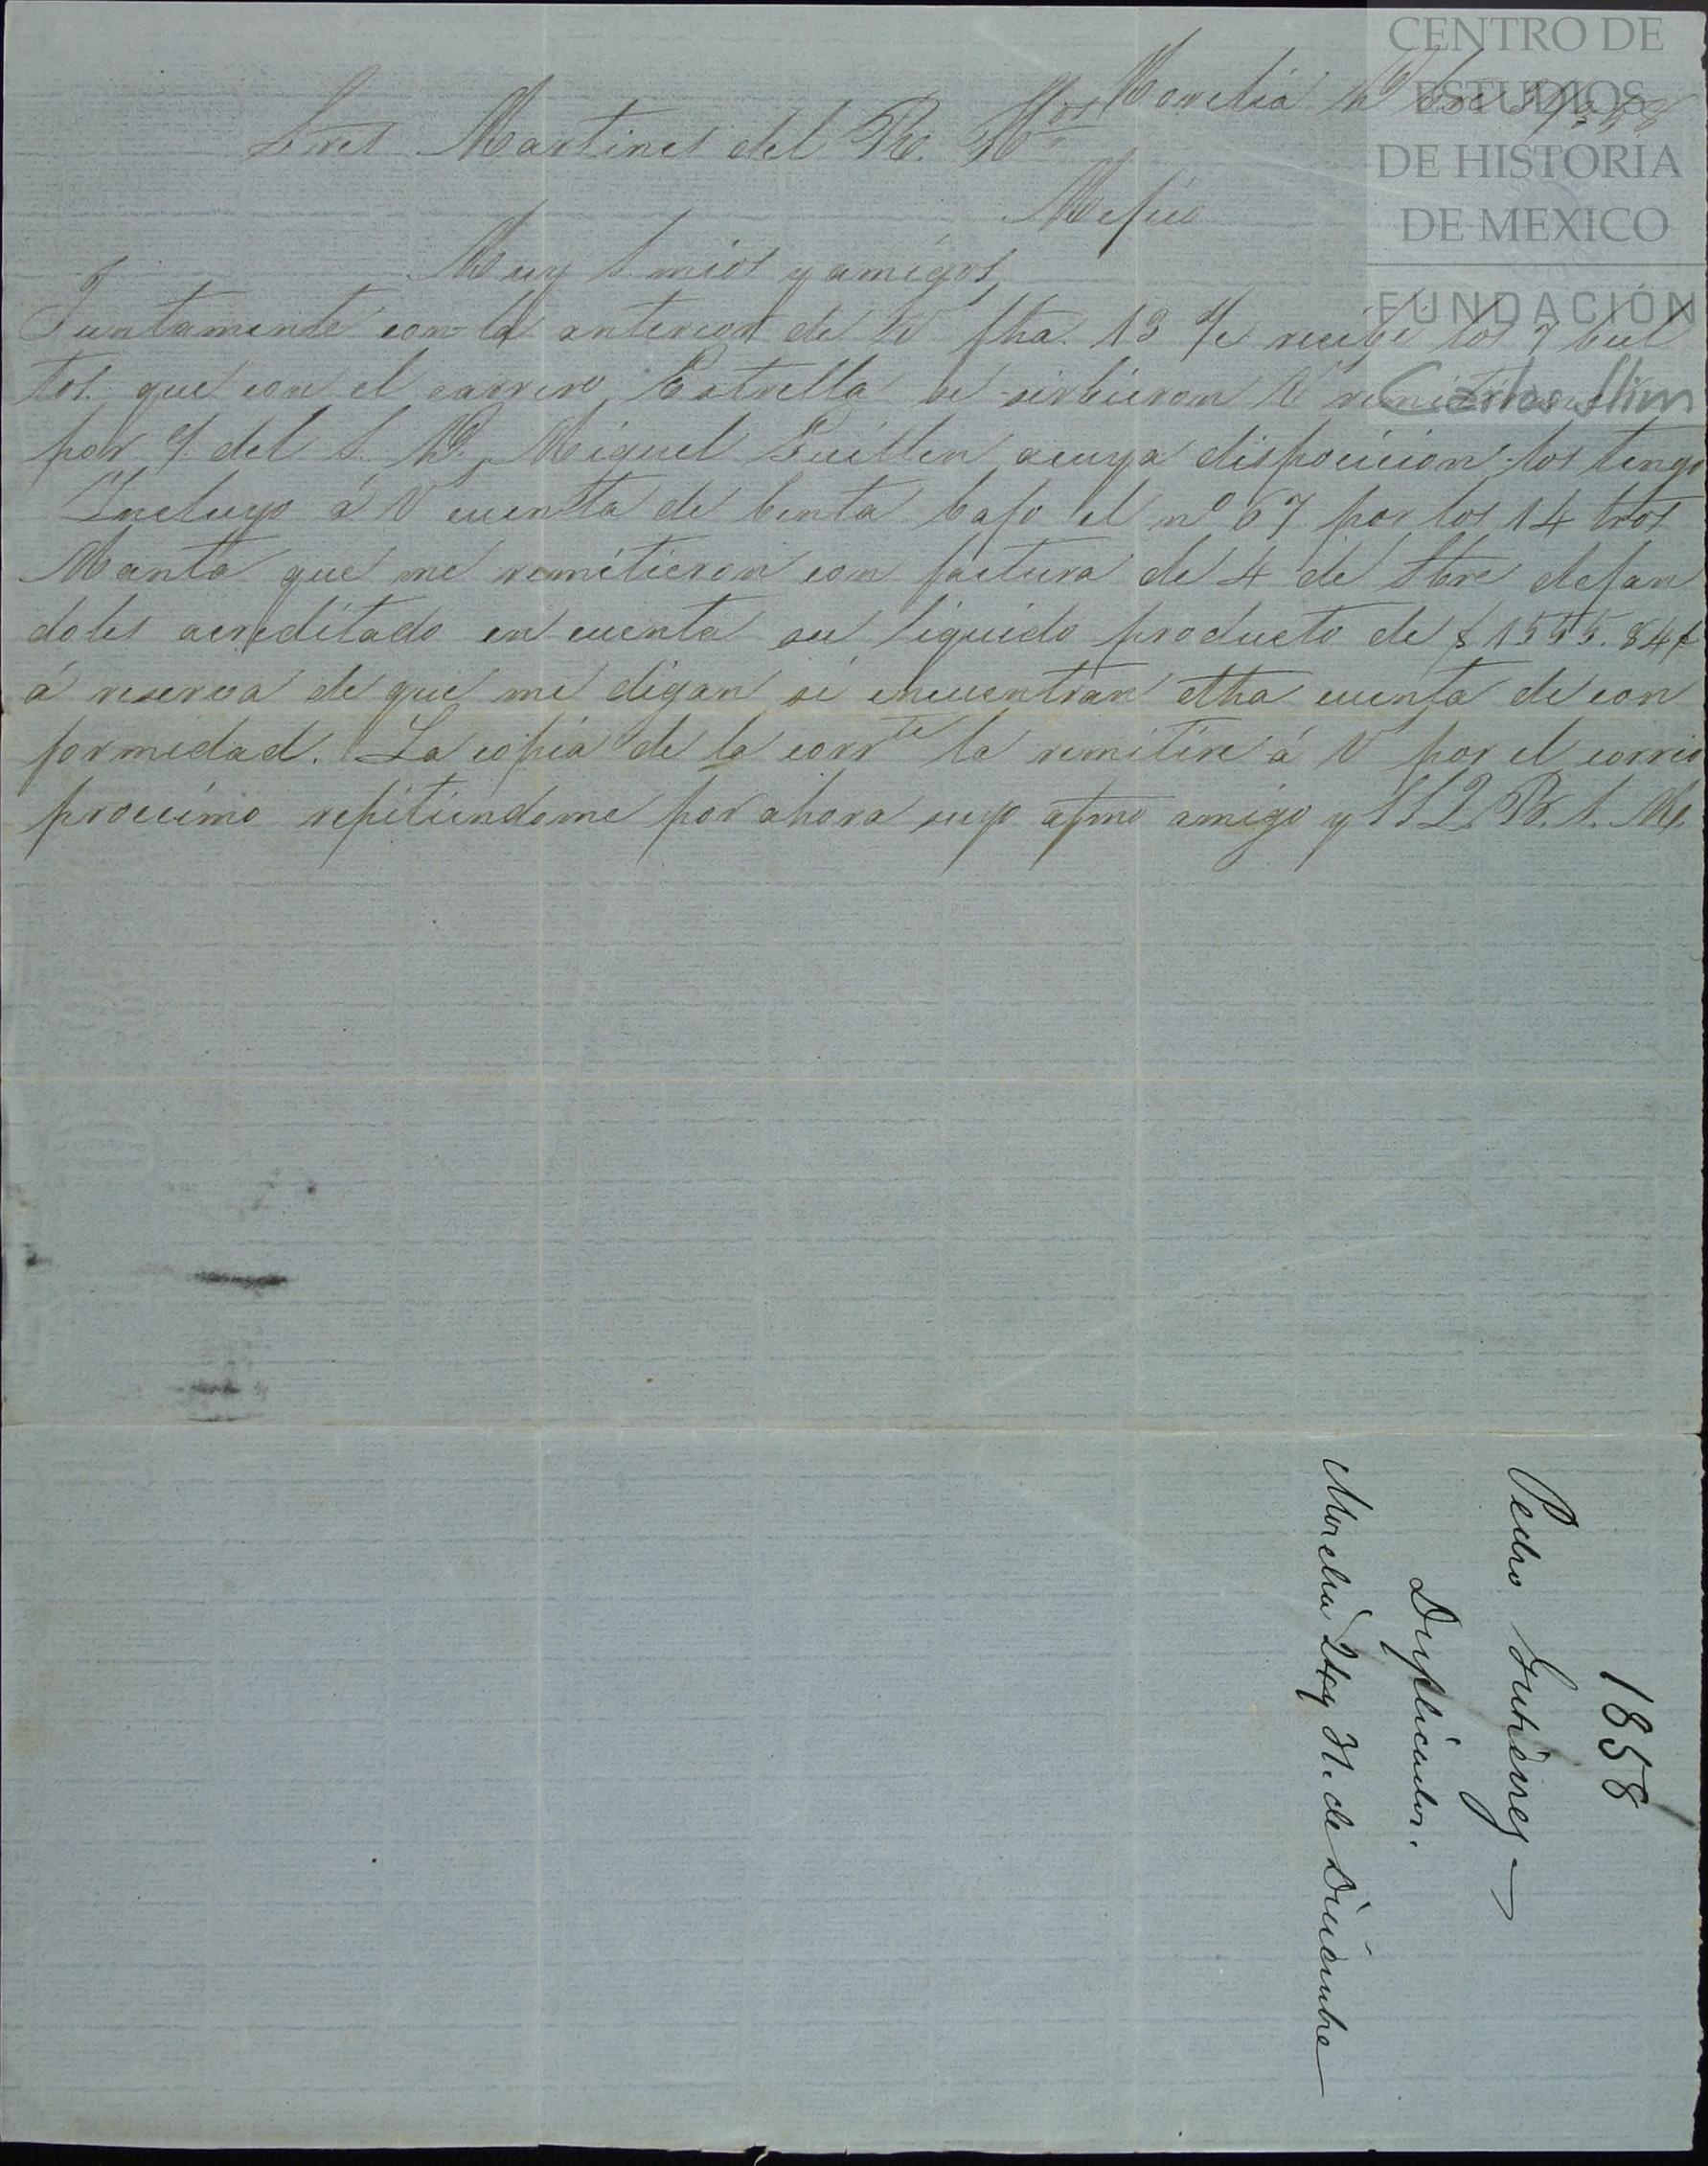 Morelia Dbre 31/858
Sres Martines del Rio Hos
Mejico
Muy S. mios y amigos,
Juntamente con la anterior de V fha. 13 recibi los 7 bul
tos que con el carrero Estrella se sirbieron V remitirme
por del S. D. Miguel Guillen acuya disposicion los tengo
Incluyo á V cuenta de benta bajo el nº 67 por los 14 tros
Manta que me remitieron con factura de 4 de Sbre dejan
doles acreditado en cuenta su liquido producto de $1555.84
á reserva de que me digan si encuentran dha cuenta de con
formedad. La copia de la corrte la remitire á V por el correo
procsimo repitiendome por ahora suyo afmo amigo y SSQ B. S. M.
1858
Pedro Gutierrez
Duplicados.
Morelia 24 y 31. de Diciembre
CENTRO DE
ESTUDIOS
DE HISTORIA
DE MEXICO
FUNDACIÓN
Carlos Slim